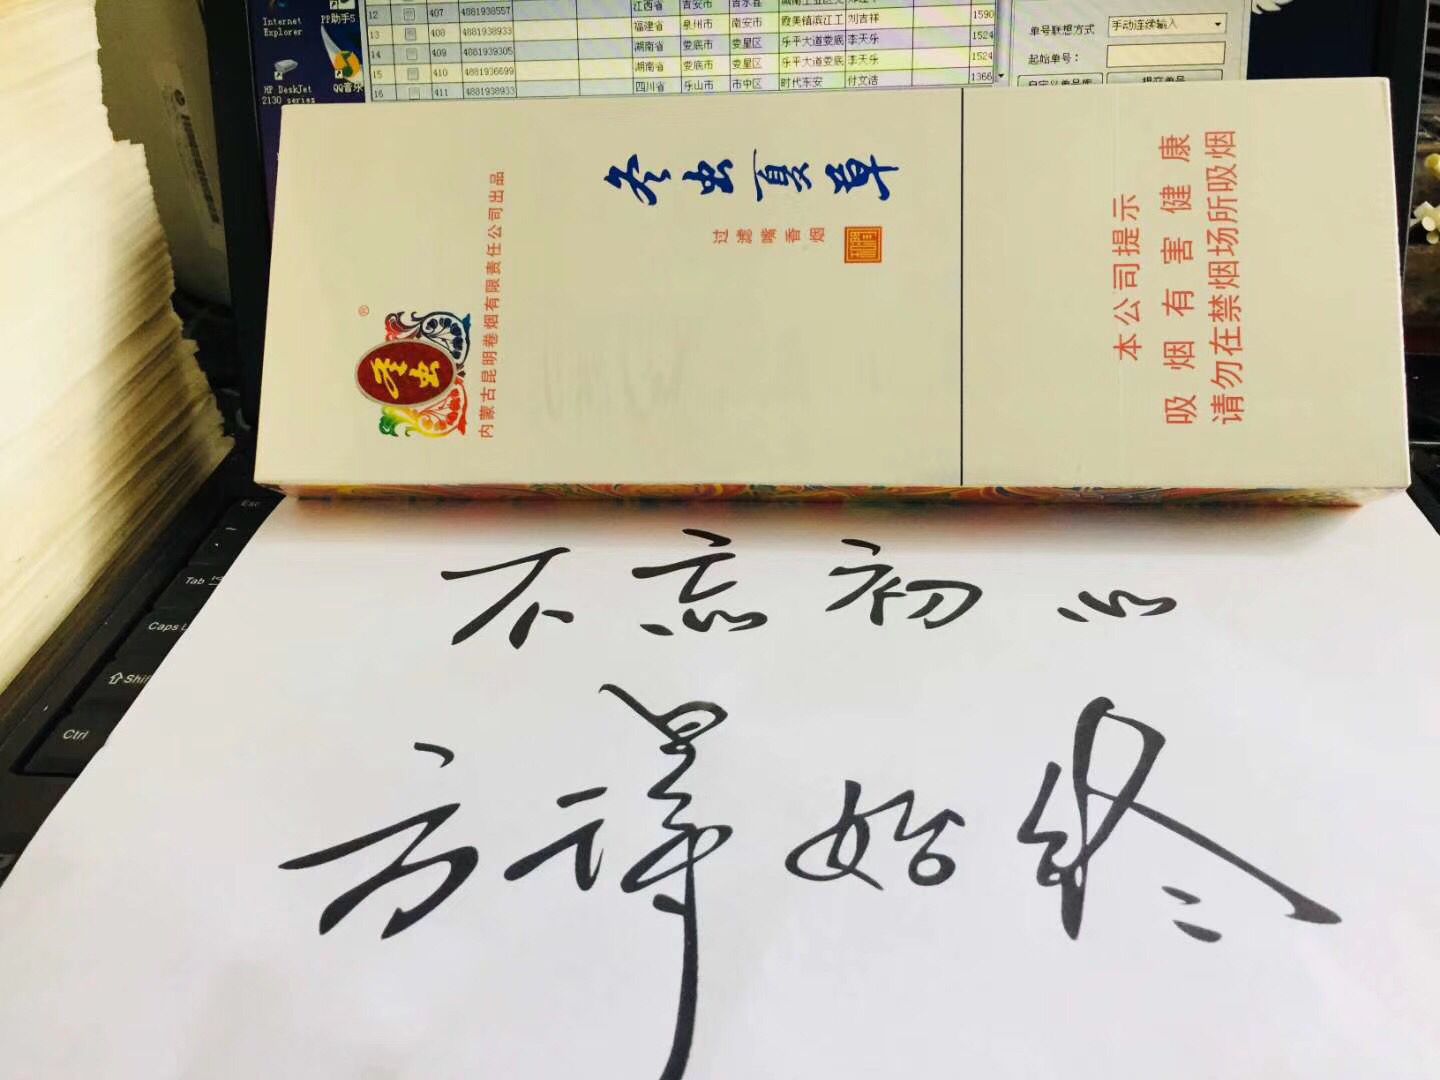 Internet
Explorer
PP助手5
HP DeskJet
2130 series
QQ音乐
12 407 4881938557 江西省 吉安市 吉水县
13 408 4881938933 福建省 泉州市 南安市 霞美镇滨江工 刘吉祥 1590
14 409 4881939305 湖南省 娄底市 娄星区 乐平大道娄底 李天乐 1524
15 410 4881936699 湖南省 娄底市 娄星区 乐平大道娄底 李天乐 1524
16 411 4881938933 四川省 乐山市 市中区 时代东安 付文浩 1366
单号联想方式 手动连续输入
起始单号：
冬虫夏草
过滤嘴香烟
®
冬虫
内蒙古昆明卷烟有限责任公司出品
本公司提示
吸烟有害健康
请勿在禁烟场所吸烟
Esc
Tab
Caps
Shift
Ctrl
不忘初心
方得始终